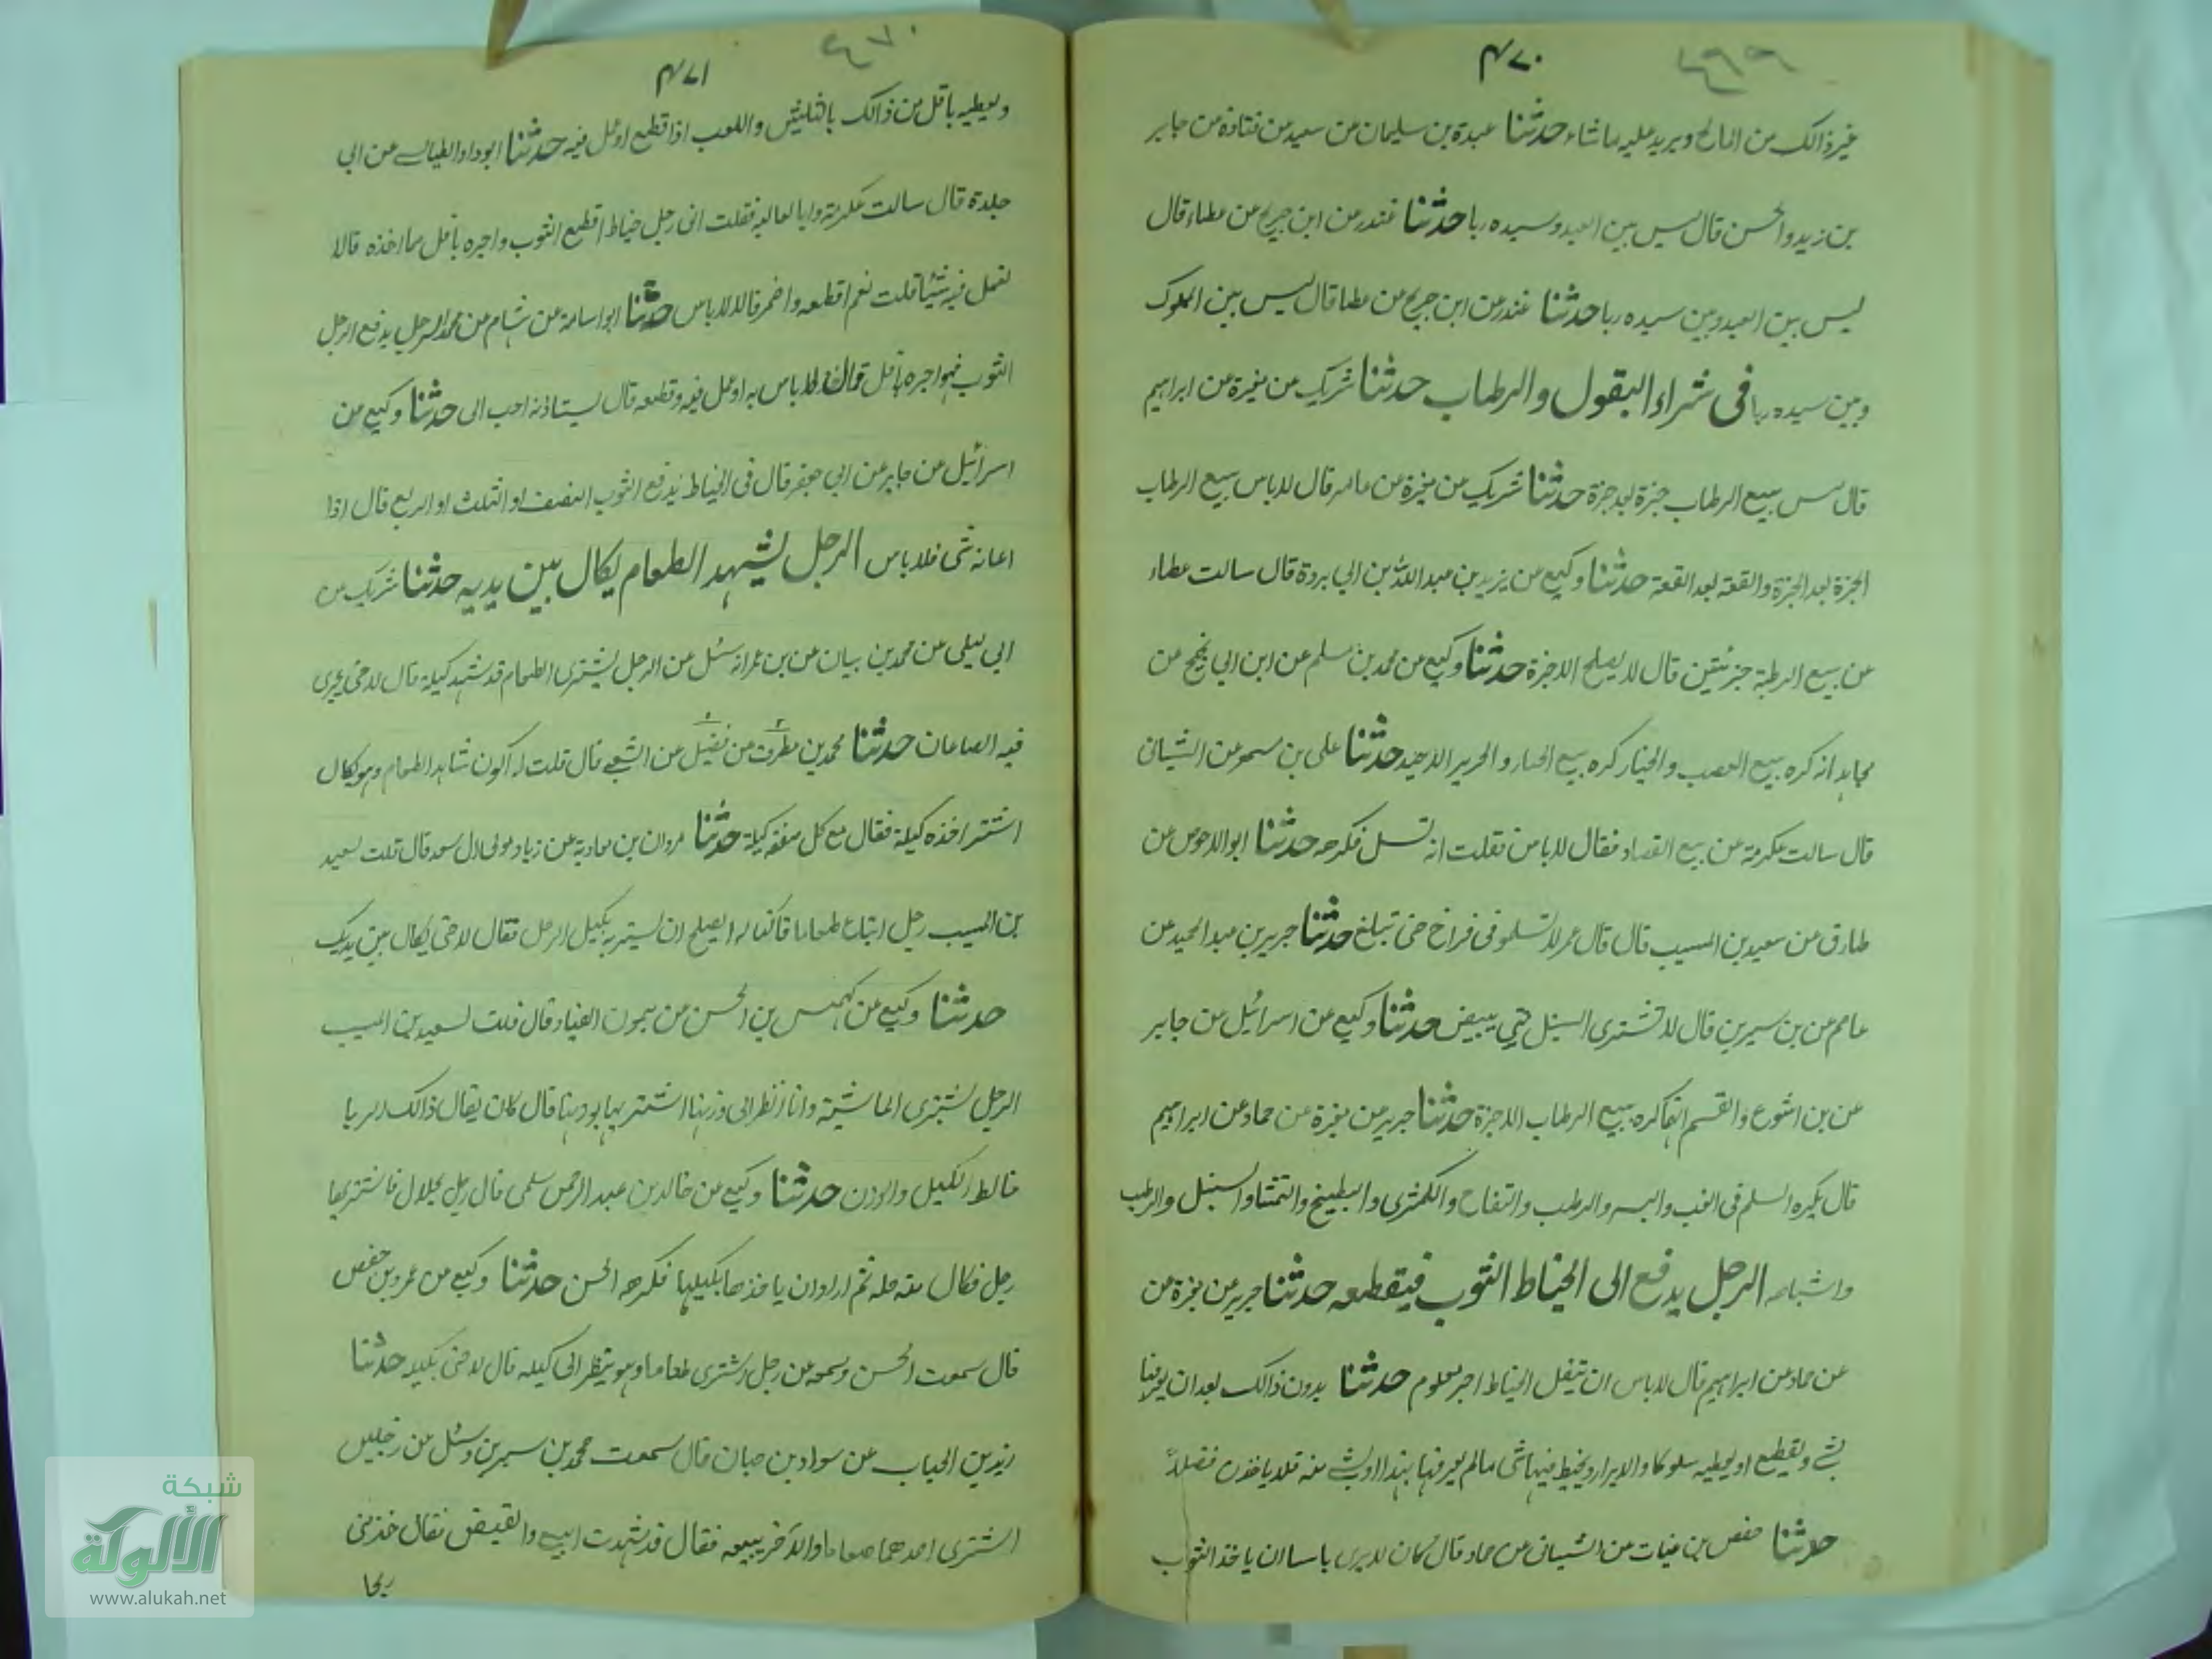 ۴۷۰
غير ذالك من انمائ ويريد عليه ما شاء حدثنا عبدة بن سليمان عن سعيد عن قتادة عن جابر
بن زيد والحسن قال ليس بين العبد وسيده ربا حدثنا غندر عن ابن جريج عن عطاء قال
ليس بين العبد وبين سيده ربا حدثنا غندر عن ابن جريج عن عطا قال ليس بين المملوك
وبين سيده ربا فى شراء البقول والرطاب حدثنا شريك عن مغيرة عن ابراهيم
قال بيع الرطاب جزة بعد جزة حدثنا شريك عن مغيرة عن عامر قال لا باس ببيع الرطاب
الجزة بعد الجزة والقعة بعد القعة حدثنا وكيع عن يزيد بن عبد الله بن ابي بردة قال سالت عطاء
عن بيع الرطبة جزتين قال لا يصلح الا جزة حدثنا وكيع عن محمد بن مسلم عن ابن ابي نجيح عن
مجاهد انه كره بيع القصب والخيار كره بيع الخيار و الخربز الا حدثنا على بن مسهر عن الشيبانى
قال سالت عكرمة عن بيع القصاد فقال لا باس فقلت انه فكرهه حدثنا ابو الاحوص عن
طارق عن سعيد بن المسيب قال قال عمر لا تسلموا فى فراخ حتى تبلغ حدثنا جرير بن عبد الحميد عن
عاصم عن بن سيرين قال لا تشترى السنبل حتى يبيض حدثنا وكيع عن اسرائيل عن جابر
عن بن اشوع والقسم انهما كره بيع الرطاب الا جزة حدثنا جرير عن مغيرة عن حماد عن ابراهيم
قال يكره السلم فى العنب والبسر والرطب والتفاح والكمثرى والبطيخ والقثا والسنبل والرطب
واشباهه الرجل يدفع الى الخياط الثوب فيقطعه حدثنا جرير عن مغيرة عن
عن حماد عن ابراهيم قال لا باس ان يتقبل الخياط اجر معلوم حدثنا بدون ذالك بعد ان
بشى ويقطع او يعطيه سلوكا والابرار ويخيط فيها شى مالم يعرفها بهذا او بشى منه فلا ياخذن فضلاً
حدثنا حفص بن غياث عن الشيبانى عن حماد قال كان لا يرى باسا ان ياخذ الثوب
۴۷۱
ويعطيه باقل من ذالك بالثلثين واللعب اذا قطع او عمل فيه حدثنا ابو داود الطيالسى عن ابى
جلدة قال سالت عكرمة وابا لعاليه فقلت انى رجل خياط اقطع الثوب واجره باقل مما اخذه قالا
تعمل فيه شيئا قلت نعم اقطعه واضمر قالا لا باس حدثنا ابو اسامة عن هشام عن محمد الرجل يدفع الرجل
الثوب فيواجره باقل لا باس به او عمل فيه وقطعه قال يستاذنه احب الى حدثنا وكيع عن
اسرائيل عن جابر عن ابى جعفر قال فى الخياط يدفع الثوب النصف او الثلث او الربع قال اذا
اعانه شى فلا باس الرجل يشهد الطعام يكال بين يديه حدثنا شريك عن
ابى ليلى عن محمد بن بيان عن بن عمر انه سئل عن الرجل يشترى الطعام قد شهد كيله قال لا حتى يجرى
فيه الصاعان حدثنا محمد بن مطرف عن فضيل عن الشعبى قال قلت له اكون شاهد الطعام وهو يكال
اشتر اخذه كيلة فقال مع كل صفقة كيلة حدثنا مروان بن معاوية عن زياد مولى ال سعد قال قلت لسعيد
بن المسيب رجل ابتاع طعاما فاكتاله ايصلح ان يشتريه بكيل الرجل فقال لا حتى يكال بين يديك
حدثنا وكيع عن كهمس بن الحسن عن ميمون القناد قال قلت لسعيد بن المسيب
الرجل يشترى الماشية وانا انظر الى وزنها اشتريها بوزنها قال كان يقال ذالك الربا
خالط الكيل والوزن حدثنا وكيع عن خالد بن عبد الرحمن سلمى قال رجل بجلال فاشتريها
رجل فكال منه جله ثم اراد ان ياخذها بكيلها فكرهه الحسن حدثنا وكيع عن عمر وبن حفص
قال سمعت الحسن وسمعه عن رجل اشترى طعاما وهو ينظر الى كيله قال لا حتى يكيله حدثنا
زيد بن الحباب عن سوادة بن حبان قال سمعت محمد بن سيرين وسئل عن رجلين
اشترى احدهما طعاما والاخر يبيعه فقال قد شهدت البيع والقبض فقال خذ منى
ربحا
شبكة
الألوكة
www.alukah.net